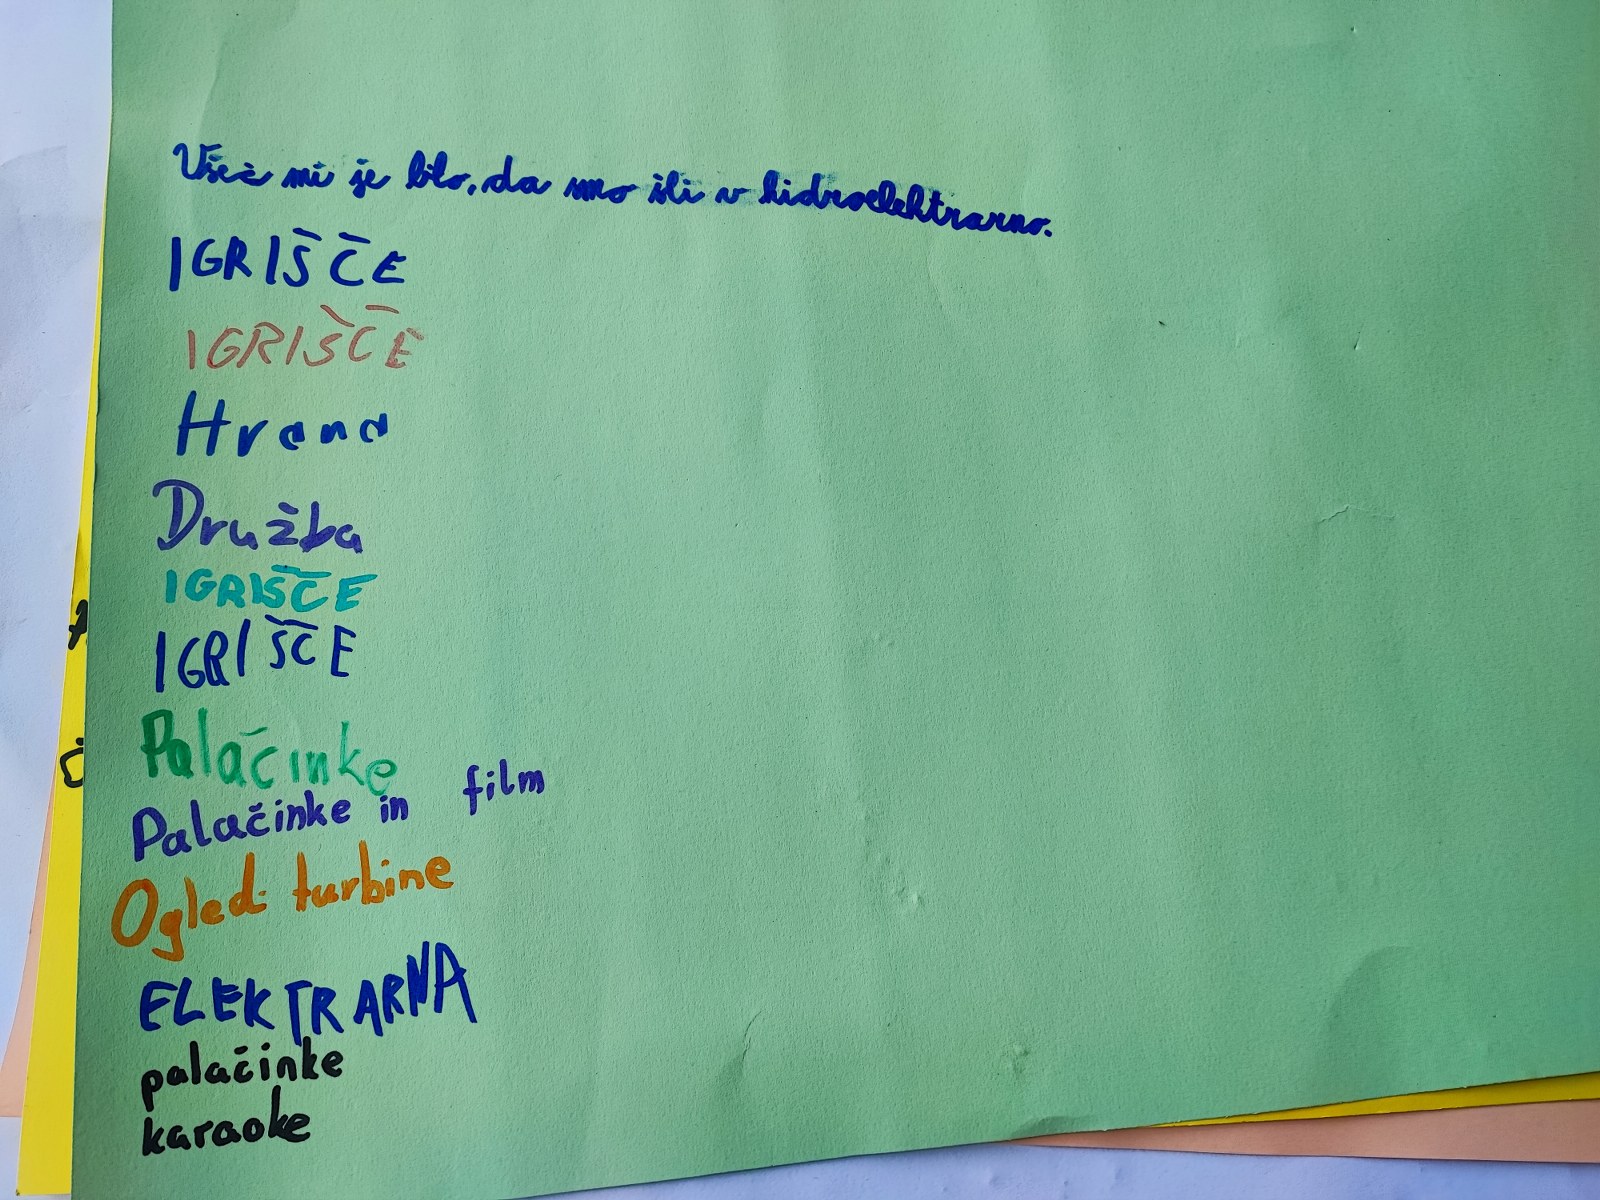 Všeč mi je blo, da smo šli v hidroelektrarno.
IGRIŠČE
IGRIŠČE
Hrana
Družba
IGRIŠČE
IGRIŠČE
Palačinke
Palačinke in film
Ogled turbine
ELEKTRARNA
palačinke
karaoke